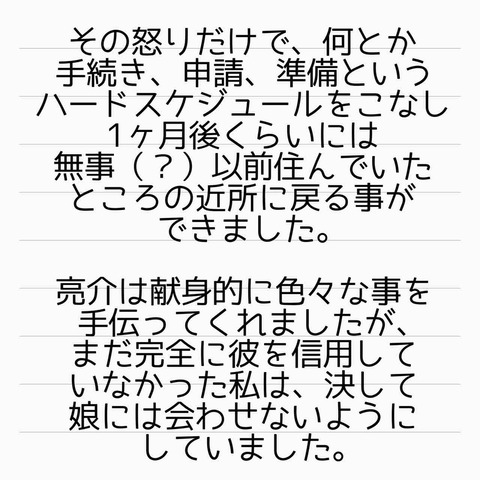 その怒りだけで、何とか
手続き、申請、準備という
ハードスケジュールをこなし
1ヶ月後くらいには
無事（？）以前住んでいた
ところの近所に戻る事が
できました。
亮介は献身的に色々な事を
手伝ってくれましたが、
まだ完全に彼を信用して
いなかった私は、決して
娘には会わせないように
していました。